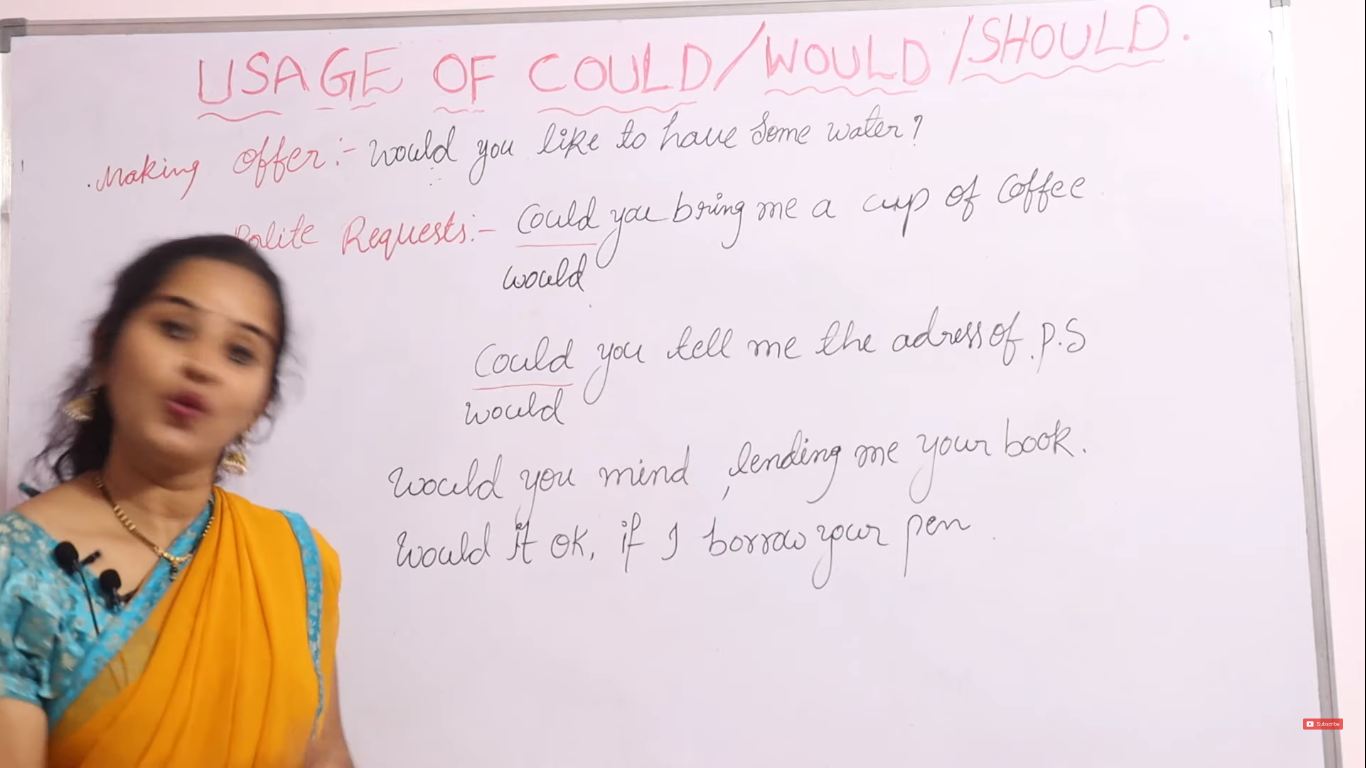 USAGE OF COULD/WOULD/SHOULD.
.Making Offer:- Would you like to have some water?
Polite Requests:- Could you bring me a cup of Coffee
would
Could you tell me the adress of .P.S
would
Would you mind, lending me your book.
Would it ok, if I borrow your pen.
Subscribe